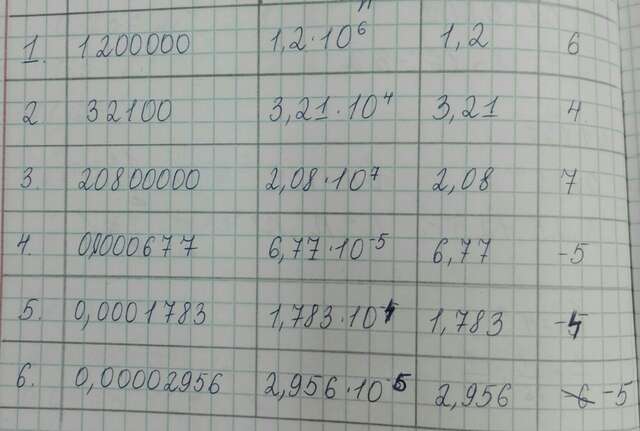 1. 1200000 1,2·10⁶ 1,2 6
2 32100 3,21·10⁴ 3,21 4
3. 20800000 2,08·10⁷ 2,08 7
4. 0,0000677 6,77·10⁻⁵ 6,77 -5
5. 0,0001783 1,783·10⁻⁴ 1,783 -4
6. 0,00002956 2,956·10⁻⁵ 2,956 -6 -5